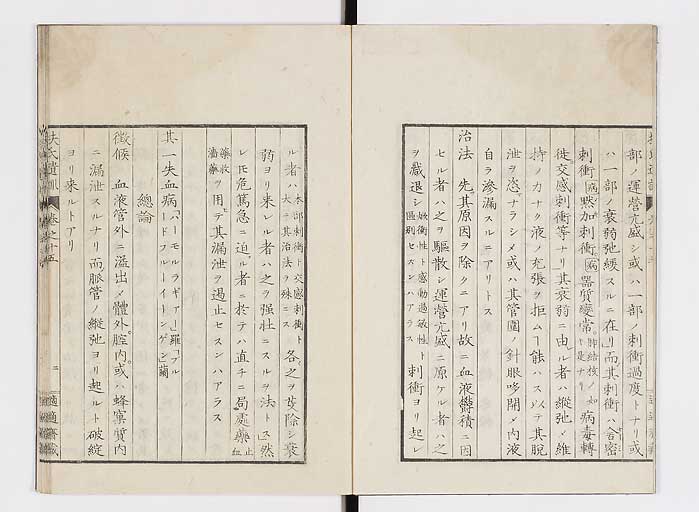 部ノ運營亢盛シ或ハ一部ノ刺衝過度トナリ或
ハ一部ノ衰弱弛緩スルニ在リ而其刺衝ハ合密
刺衝病黙加刺衝病器質變常肺結核ノ如キ是ナリ病毒轉
徙交感刺衝等ナリ其衰弱ニ由ル者ハ縱弛ノ維
持ノ力ナク液ノ充張ヲ拒ムヿ能ハス以テ其脱
泄ヲ恣ナラシメ或ハ其管圍ノ針眼哆開ノ內液
自ラ滲漏スルニアリトス
治法 先其原因ヲ除クニアリ故ニ血液鬱積ニ因
セル者ハ之ヲ驅散シ運營亢盛ニ原ケル者ハ之
ヲ減退シ焮衝性ト感動過敏性ト區別セスンハアラス刺衝ヨリ起レ
ル者ハ本部刺衝ト交感刺衝ト大ニ其治法ヲ殊ニス各之ヲ芟除シ衰
弱ヨリ来レル者ハ之ヲ强壮ニスルヲ法トス然
レ𪜈危篤急ニ迫ル者ニ於テハ直チニ局處藥止血
藥收濇藥ヲ用テ其漏泄ヲ遏止セスンハアラス
其一失血病
總論
徴候 血液管外ニ溢出ノ體外腔内或ハ蜂窠質内
ニ漏泄スルナリ而脈管ノ縱弛ヨリ起ルト破綻
ヨリ来ルトアリ
扶氏遺訓 卷之十五 二 適適齋藏